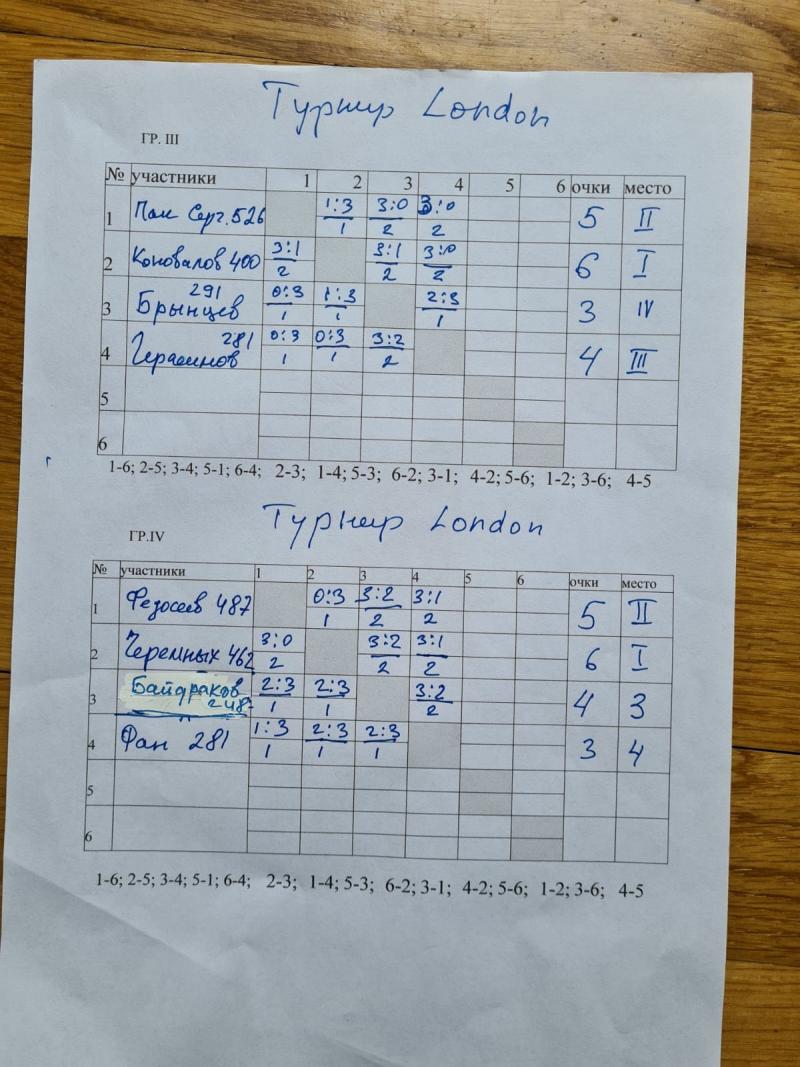 Турнир London
ГР. III
№ участники 1 2 3 4 5 6 очки место
1 Пак Серг. 526 1:3 3:0 3:0 5 II
1 2 2
2 Коновалов 400 3:1 3:1 3:0 6 I
2 2 2
291
3 Брынцев 0:3 1:3 2:3 3 IV
1 1 1
281
4 Герасимов 0:3 0:3 3:2 4 III
1 1 2
5
6
1-6; 2-5; 3-4; 5-1; 6-4; 2-3; 1-4; 5-3; 6-2; 3-1; 4-2; 5-6; 1-2; 3-6; 4-5
Турнир London
ГР.IV
№ участники 1 2 3 4 5 6 очки место
1 Федосеев 487 0:3 3:2 3:1 5 II
1 2 2
2 Черемных 462 3:0 3:2 3:1 6 I
2 2 2
3 Байдраков 2:3 2:3 3:2 4 3
248 1 1 2
4 Фан 281 1:3 2:3 2:3 3 4
1 1 1
5
6
1-6; 2-5; 3-4; 5-1; 6-4; 2-3; 1-4; 5-3; 6-2; 3-1; 4-2; 5-6; 1-2; 3-6; 4-5